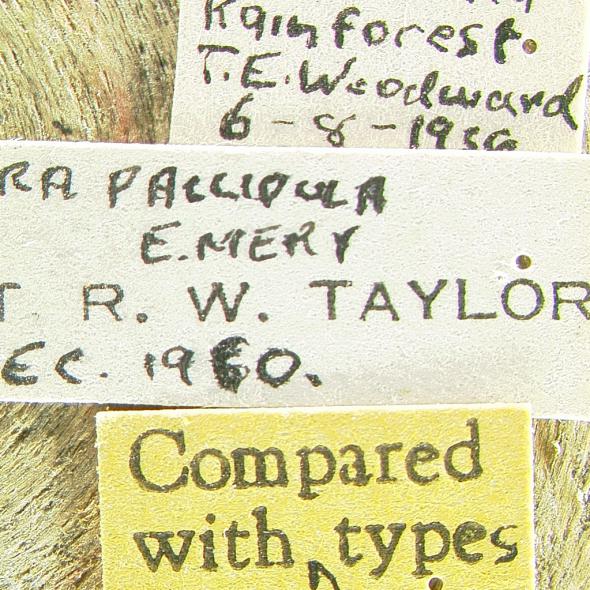 Rainforest.
T.E. Woodward
6-8-1956
RA PALLIDULA
EMERY
T R. W. TAYLOR
EC. 1960.
Compared
with types